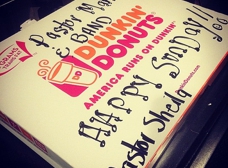 Pastor Ma
& BAND
DUNKIN'
DONUTS
AMERICA RUNS ON DUNKIN'
HAPPY SUNDAY!!!
Pastor Shela